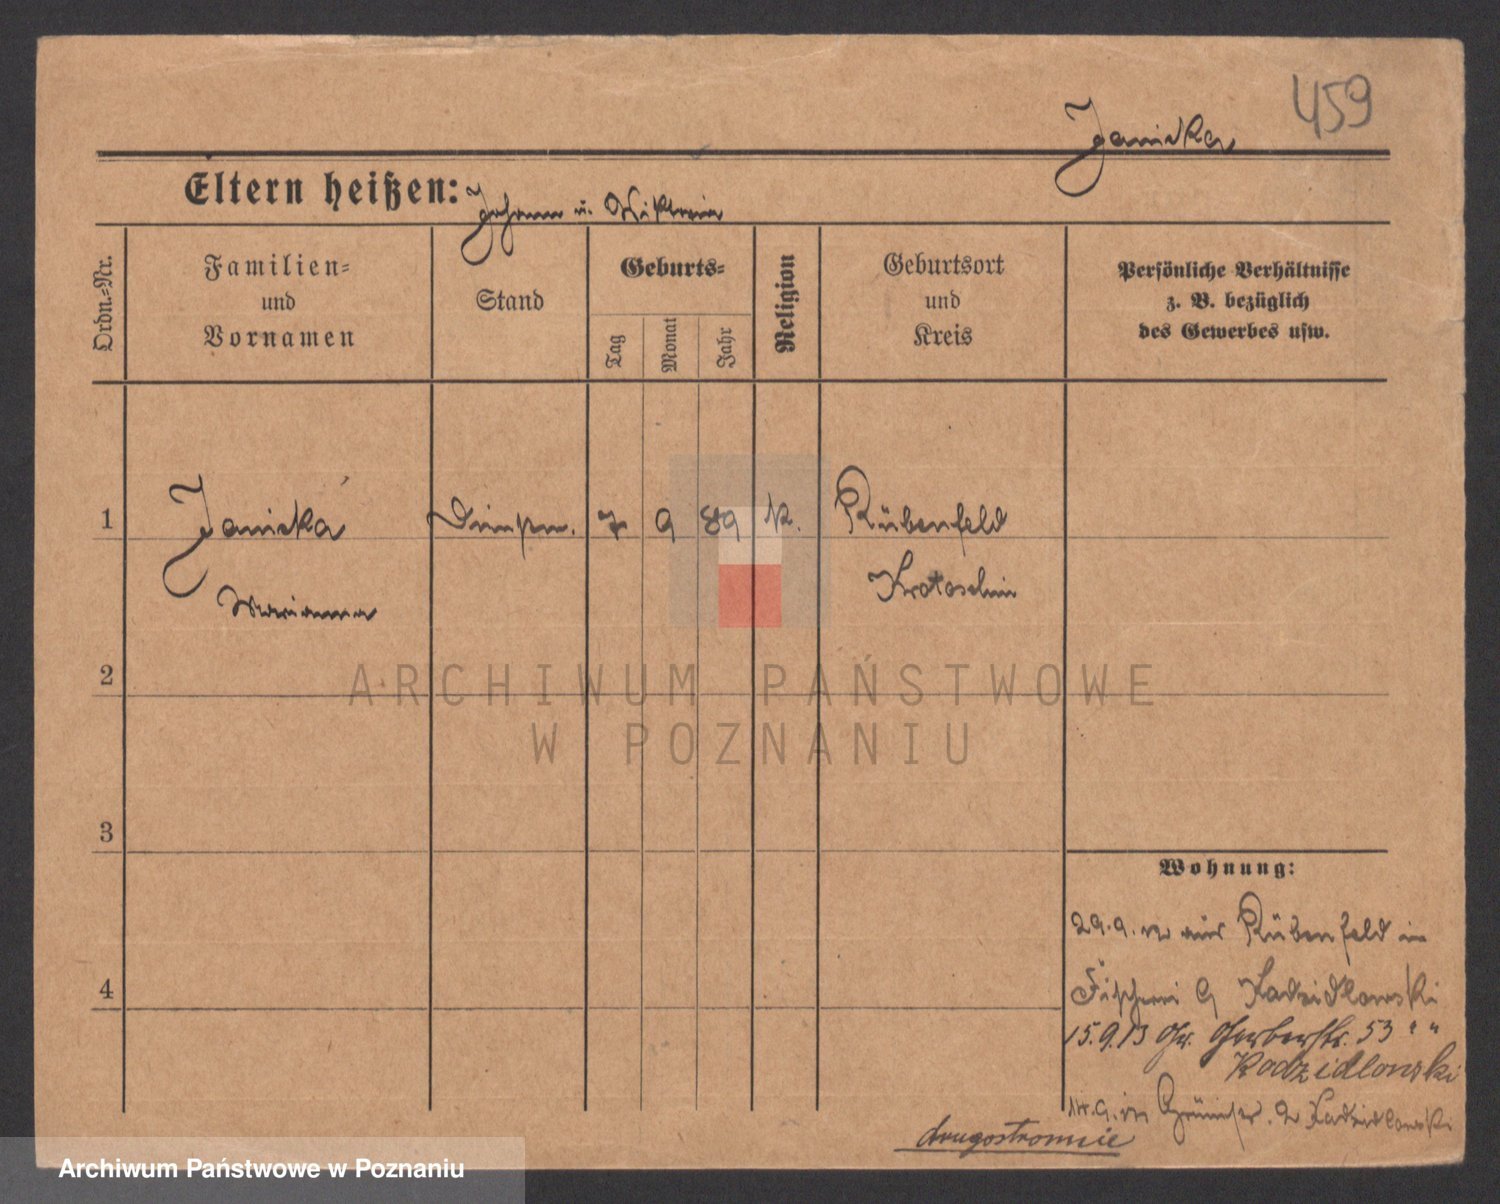 459
Janicka
Eltern heißen: Johann u. Viktoria
Ordn.-Nr.
Familien-
und
Vornamen
Stand
Geburts-
Tag
Monat
Jahr
Religion
Geburtsort
und
Kreis
Persönliche Verhältnisse
z. B. bezüglich
des Gewerbes usw.
1 Janicka Dienstm. 7 9 89 k. Rübenfeld
Marianna Krotoschin
2
3
4
Wohnung:
29.9.12 aus Rübenfeld in
Fischerei 9 Kadzidlowski
15.9.13 Gr. Gerberstr. 53 " "
Kadzidlowski
14.9. Kadzidlowski
drugostronnie
ARCHIWUM PAŃSTWOWE
W POZNANIU
Archiwum Państwowe w Poznaniu